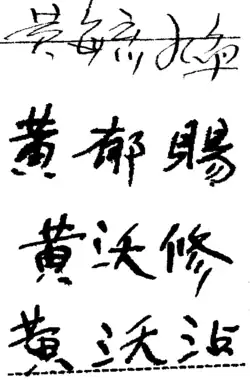 黃毓
黃郁賜
黃沃修
黃沃沾